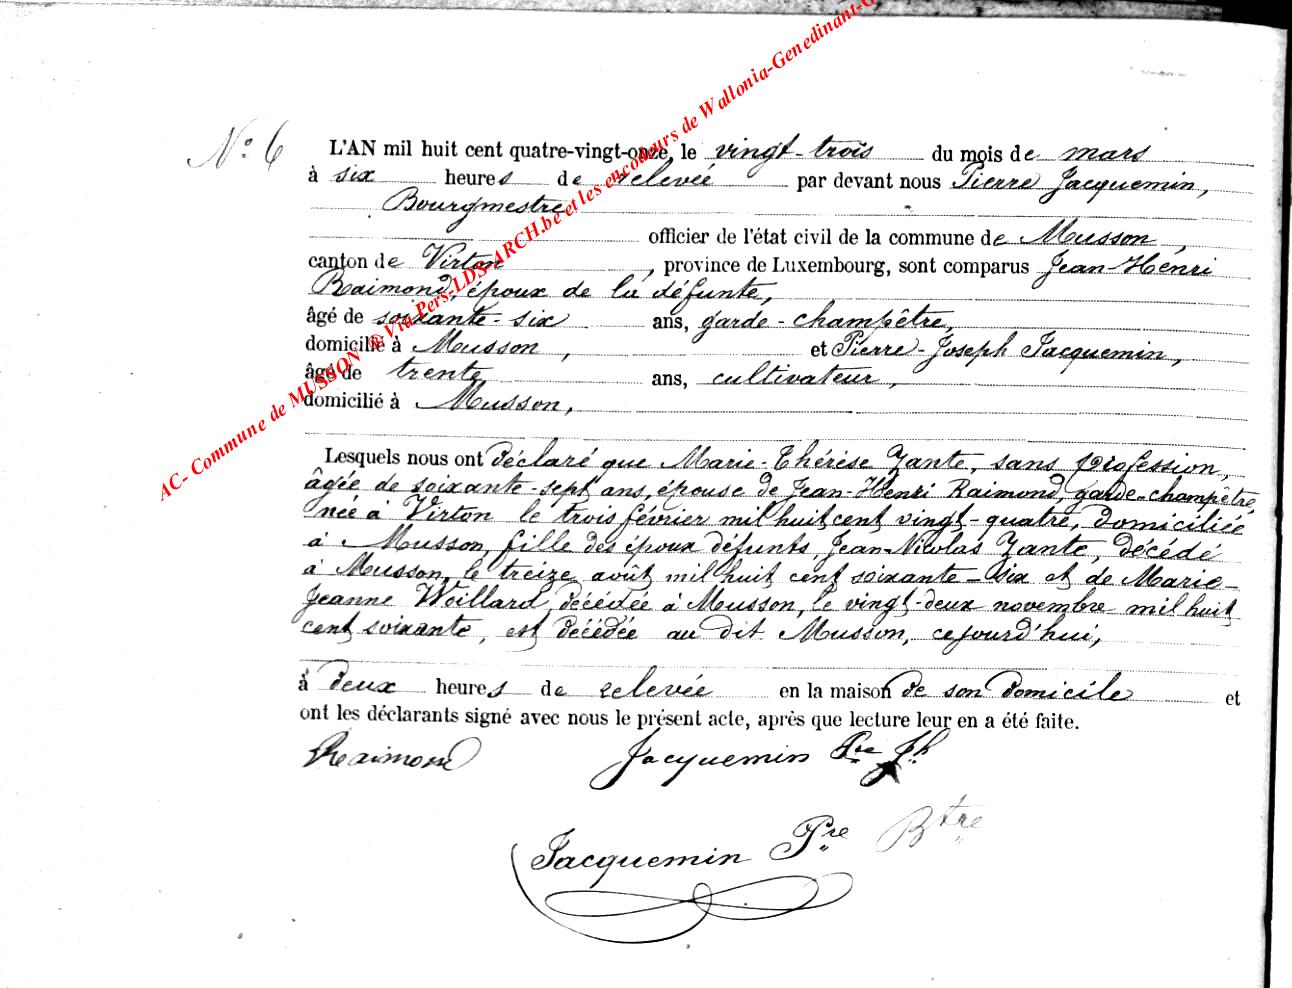 N° 6
L'AN mil huit cent quatre-vingt-onze, le vingt-trois du mois de mars
à six heures de relevée par devant nous Pierre Jacquemin,
Bourgmestre
officier de l'état civil de la commune de Musson,
canton de Virton, province de Luxembourg, sont comparus Jean-Henri
Raimond, époux de la défunte,
âgé de soixante-six ans, garde-champêtre,
domicilié à Musson, et Pierre-Joseph Jacquemin,
âgé de trente ans, cultivateur,
domicilié à Musson,
Lesquels nous ont déclaré que Marie-Thérèse Zante, sans profession,
âgée de soixante-sept ans, épouse de Jean-Henri Raimond, garde-champêtre,
née à Virton le trois février mil huit cent vingt-quatre, domiciliée
à Musson, fille des époux défunts, Jean-Nicolas Zante, décédé
à Musson, le treize août mil huit cent soixante-six et de Marie-
Jeanne Woillard, décédée à Musson, le vingt-deux novembre mil huit
cent soixante, est décédée au dit Musson, cejourd'hui,
à deux heures de relevée en la maison de son domicile et
ont les déclarants signé avec nous le présent acte, après que lecture leur en a été faite.
Raimond Jacquemin Pre Jh
Jacquemin Pre Btre
AC- Commune de MUSSON @Via Pers-LDS-ARCH.be et les encodeurs de Wallonia-Genedinant-G